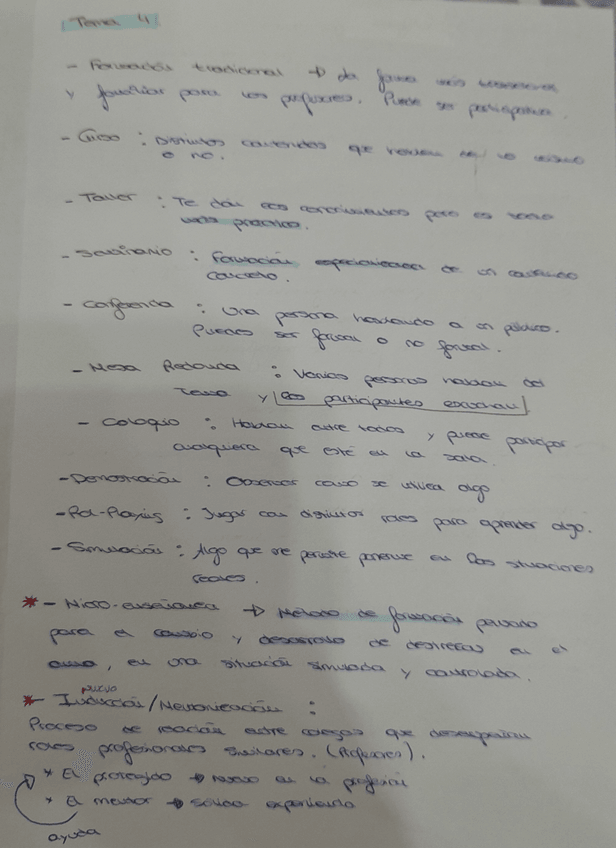 Tema 4
- Formación tradicional → da forma más
y familiar para los profesores. Puede ser participativa.
- Curso : Distintos contenidos que hablan del lo mismo
o no.
- Taller : Te dan los conocimientos pero es todo
más práctico.
- Seminario : Formación especializada de un contenido
concreto.
- Conferencia : Una persona hablando a un público.
Pueden ser formal o no formal.
- Mesa Redonda : Varias personas hablan del
tema y los participantes escuchan
- Coloquio : Hablan entre todos y puede participar
cualquiera que esté en la sala.
- Demostración : Observar como se utiliza algo
- Rol-Playing : Jugar con distintos roles para aprender algo.
- Simulación : Algo que me permite ponerme en las situaciones
reales.
* - Micro-enseñanza → Método de formación pensado
para el cambio y desarrollo de destrezas en el
aula, en una situación simulada y controlada.
nuevo
* - Inducción/Mentorización :
Proceso de relación entre colegas que desempeñan
roles profesionales similares. (Profesores).
* El protegido → nuevo en la profesión
* El mentor → sólida experiencia
ayuda